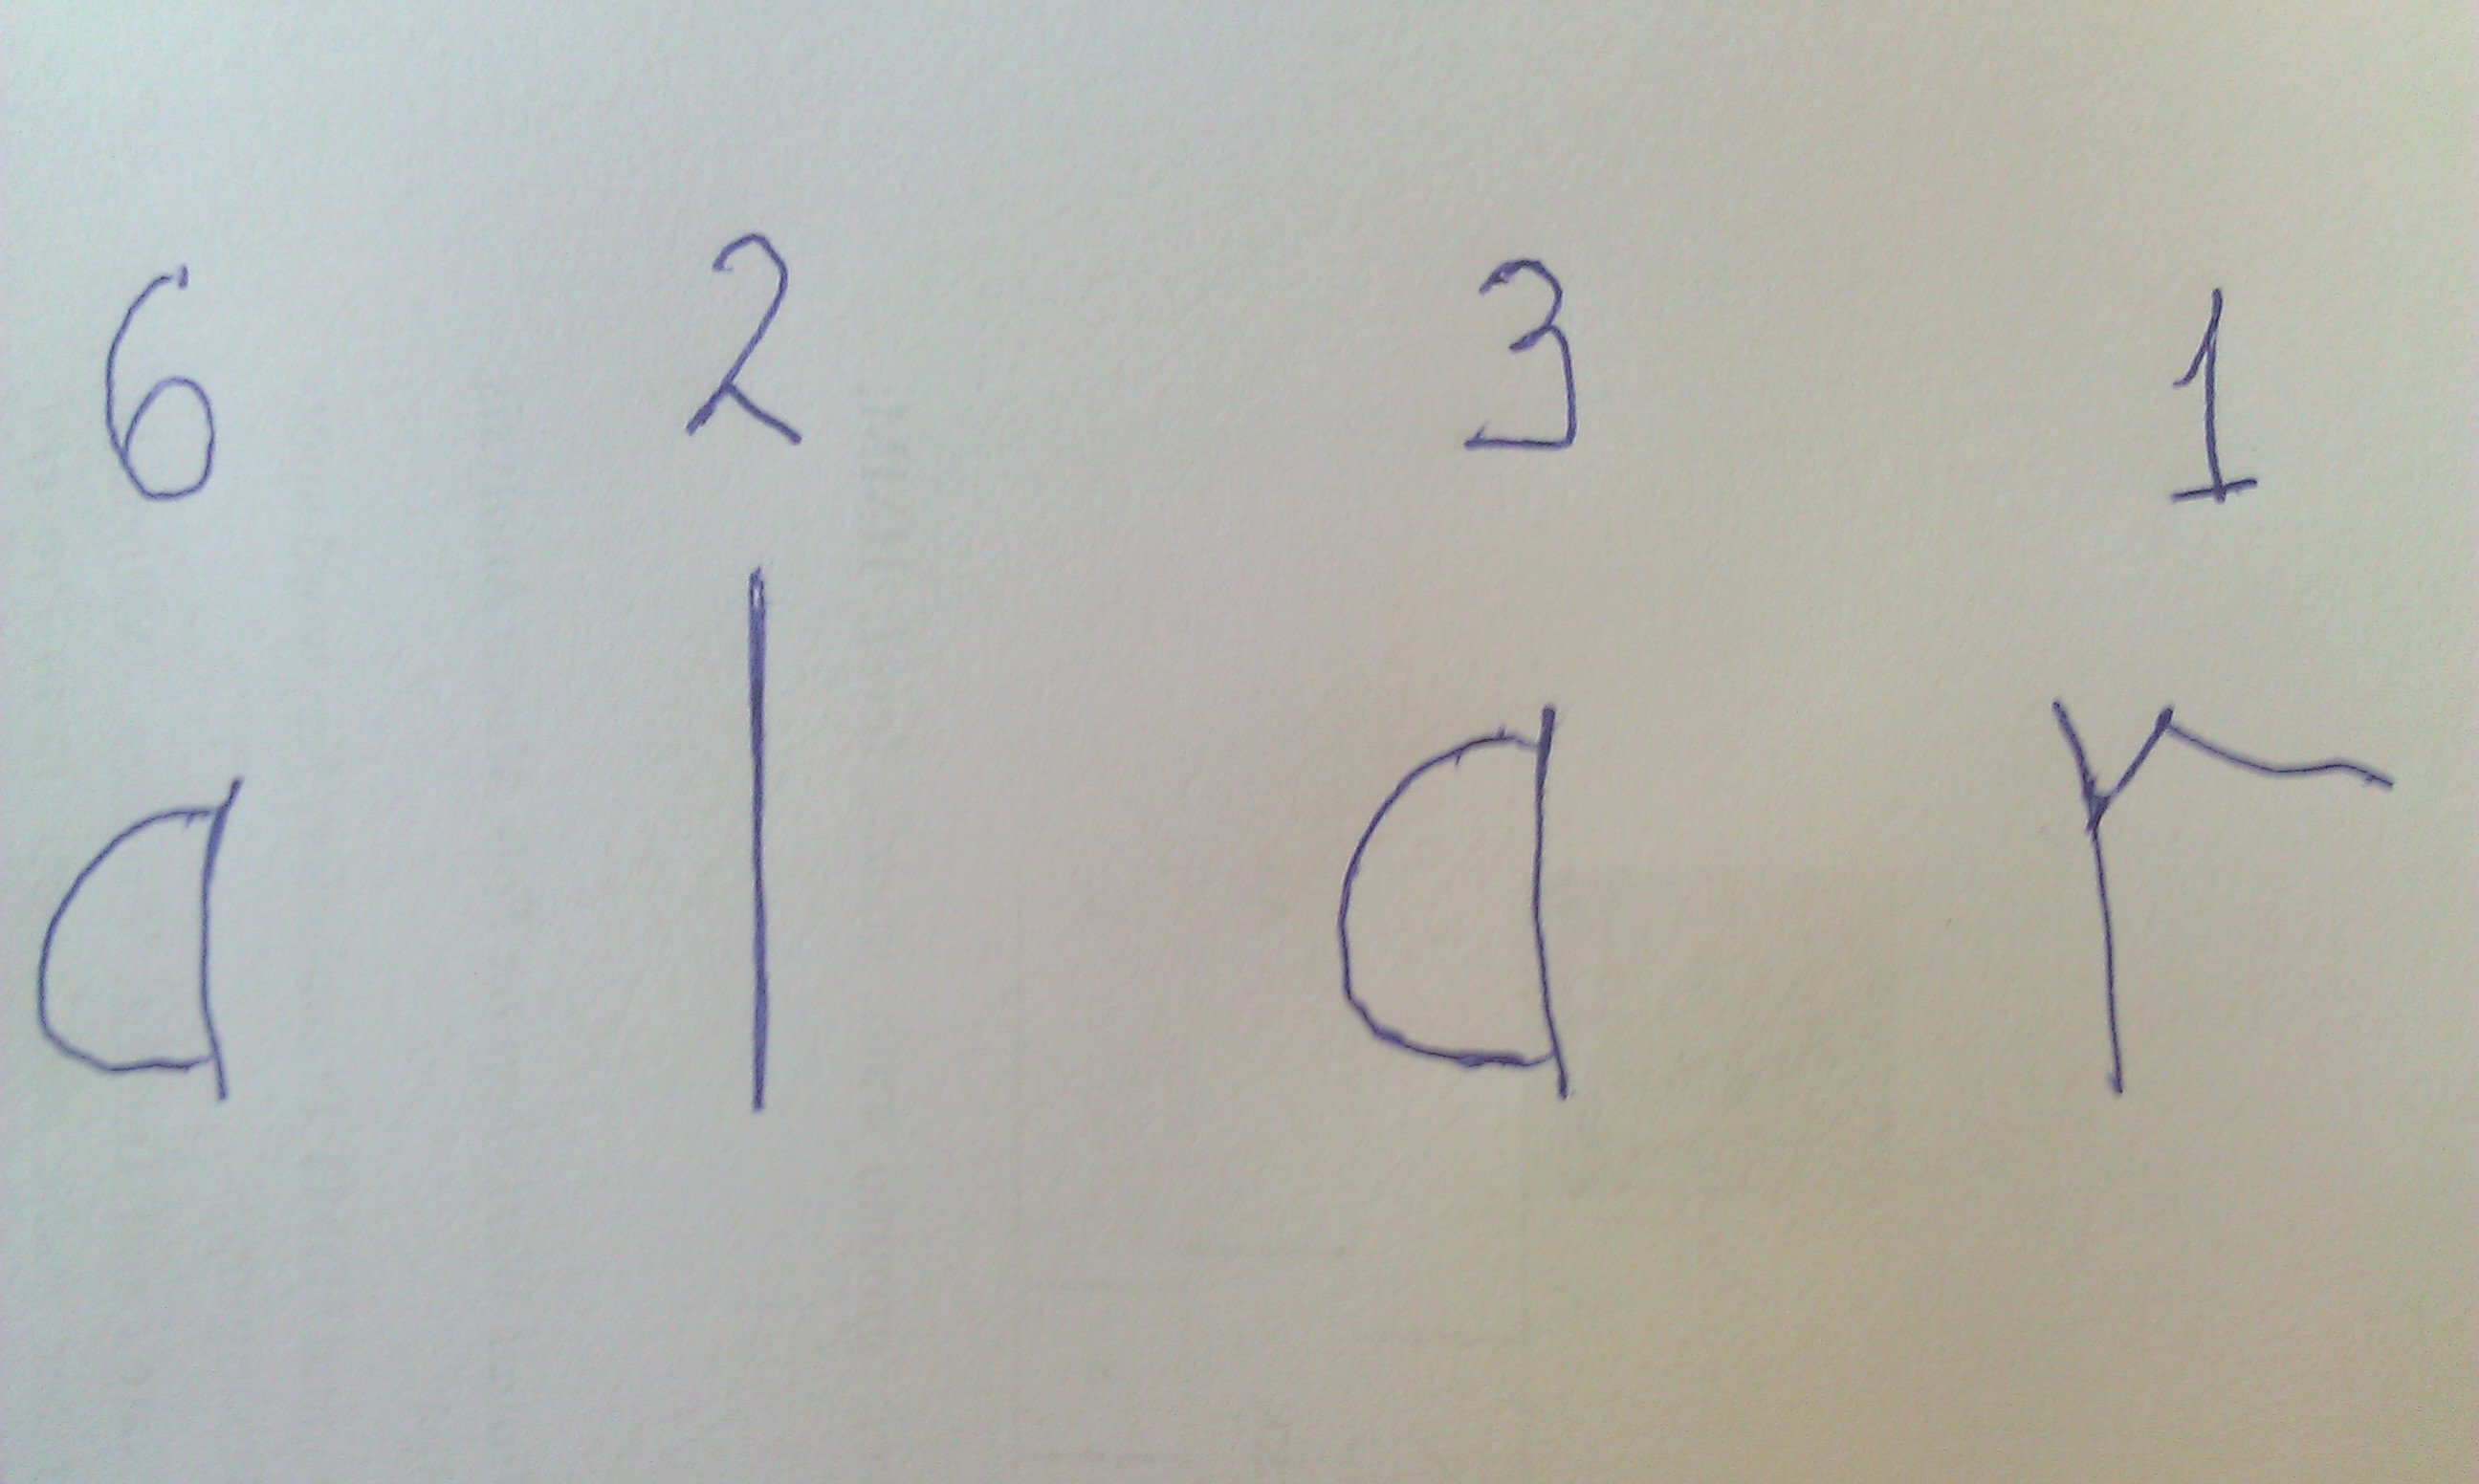 6 2 3 1
a l a r